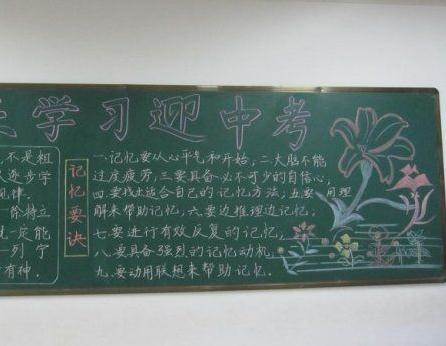 学习迎中考
不是粗
逐步学
规律.
记忆要诀
一.记忆要从心平气和开始,二.大脑不能
过度疲劳,三.要具备必不可少的自信心,
四.要找出适合自己的记忆方法,五.要用理
解来帮助记忆,六.要边推理边记忆,
七.要进行有效反复的记忆,
八.要具备强烈的记忆动机,
九.要动用联想来帮助记忆.
阶持立
定能
列宁
有神.